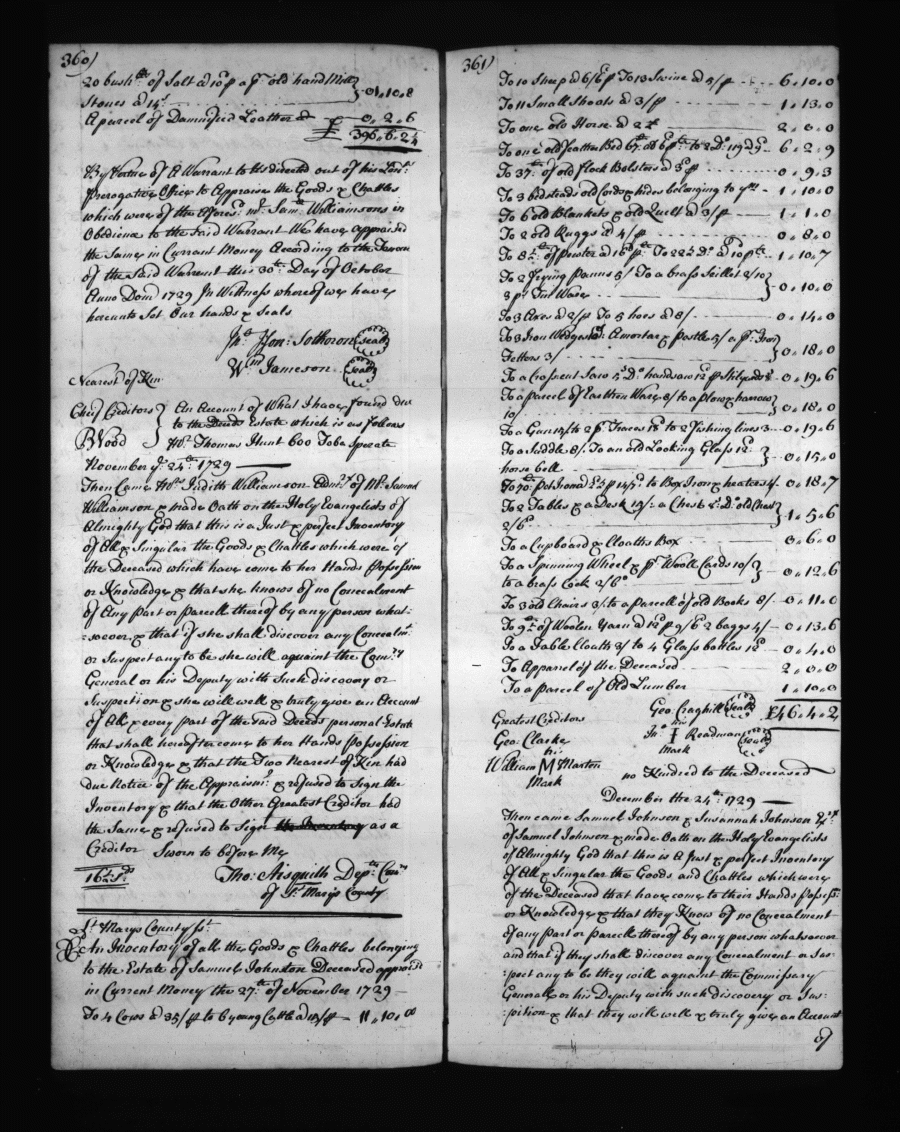 360)
20 bush.ls of Salt a 10p a pr old hand Mill
Stones a 14s } 01.10.8
A parcel of Damnified Leather a 0.2.6
£ 396.6.2¼
By Vertue of A Warrant to Us directed out of his Lord:s
Prerogative Office to Appraise the Goods & Chattles
which were of the Afores.d mr. Sam.ll Williamsons in
Obedience to the said Warrant We have appraised
the Same in Currant Money According to the Tenour
of the Said Warrant this 30th Day of October
Anno Dom 1729 In Wittness whereof we have
hereunto Set Our hands & Seals
Jno. Hen: Sothoron Seal
Wm Jameson Seal
Nearest of Kin
Chief Creditors } An Account of What I have found due
to the Deceds Estate which is as follows
Mr. Thomas Hunt 600 Toba Sperate
November ye 24th 1729
Then Came Mrs Judith Williamson Admx of Mr. Samuel
Williamson & made Oath on the Holy Evangelists of
Almighty God that this is a Just & perfect Inventory
of All & Singular the Goods & Chattles which were of
the Deceased which have come to her Hands Possession
or Knowledge & that she knows of no Concealment
of Any Part or Parcell thereof by any person what-
:soever & that if she shall discover any Concealmt
or Suspect any to be she will aquaint the Comry
General or his Deputy with Such discovery or
Suspection & she will well & truly give an Account
of All & every part of the said Deceds personal Estate
that shall hereafter come to her Hands Possession
or Knowledge & that the Two Nearest of Kin had
due Notice of the Appraismt & refused to Sign the
Inventory & that the Other Greatest Creditor had
the Same & refused to Sign the Inventory as a
Creditor Sworn to before Me
Tho: Aisquith Depty Comry
of St. Marys County
St. Marys County ss.t
An Inventory of all the Goods & Chattles belonging
to the Estate of Samuel Johnston Deceased apprais'd
in Current Money the 27th of November 1729
To 4 Cows a 35/p to 6 young Cattle a 15/p 11.10.00
361)
To 10 Sheep a 6/6 p To 13 Swine a 5/p 6.10.0
To 11 Small Shoats a 3/p 1.13.0
To one old Horse a 2£ 2.0.0
To one old feather Bed 67 lb a 6p lb To 2 Do 119 a 9d 6.2.9
To 37 lb of old flock Bolsters a 3d p 0.9.3
To 3 bedsteads old Cords & hides belonging to ym 1.10.0
To 6 old Blankets & old Quilt a 3/p 1.1.0
To 2 old Ruggs a 4/p 0.8.0
To 8 lb of Pewter a 16d p lb To 22 lb Do a 10 p lb 1.10.7
To 2 Frying Panns 5/ To a brass Skillet 2/10
3 ps Tin Ware } 0.10.0
To 3 Axes a 2/p To 5 hoes a 8/ 0.14.0
To 3 Iron Wedges A mortar & Pestle 5/ a pr Iron
Fetters 3/ } 0.18.0
To a Crosscut Saw 5s Do handsaw 12d p Stilyards 0.19.6
To a parcel of Earthen Ware 8/ to a plow & harrow
10/ } 0.18.0
To a Gun 15/ to 2 pr Traces 18d to 2 Fishing lines 3 0.19.6
To a Saddle 8/ To an old Looking Glass 12d
horse bell } 0.15.0
To 70 lb Pot Iron a 2½ p 14/7d to Box Iron & heaters 4 0.18.7
To 2 Tables & a Desk 15/: a Chest 8s Do old Chest
2/6d } 1.5.6
To a Cupboard & Cloaths Box 0.6.0
To a Spinning Wheel & pr Wooll Cards 10/
to a brass Cock 2/6d } 0.12.6
To 3 old Chairs 3/ to a parcell of old Books 8/ 0.11.0
To 9 lb of Woolen Yarn a 12d p 9/6 2 baggs 4/ 0.13.6
To a Table Cloath 3/ to 4 Glass bottles 12d 0.4.0
To Apparel of the Deceased 2.0.0
To a parcel of Old Lumber 1.10.0
Greatest Creditors Geo: Craghill Seal £46.4.2
Geo. Clarke Jno. his I Readman Seal
mark
William his M Marten
Mark no Kindred to the Deceased
December the 24th 1729
Then came Samuel Johnson & Susannah Johnson Exrs
of Samuel Johnson & made Oath on the Holy Evangelists
of Almighty God that this is A Just & perfect Inventory
of All & Singular the Goods and Chattles which were
of the Deceased that have come to their Hands Possess:
or Knowledge & that they Know of no Concealment
of any Part or Parcell thereof by any person whatsoever
and that if they shall discover any Concealment or Sus-
:pect any to be they will aquaint the Commissary
Generall or his Deputy with such discovery or Sus:
:pition & that they will well & truly give an Account
of